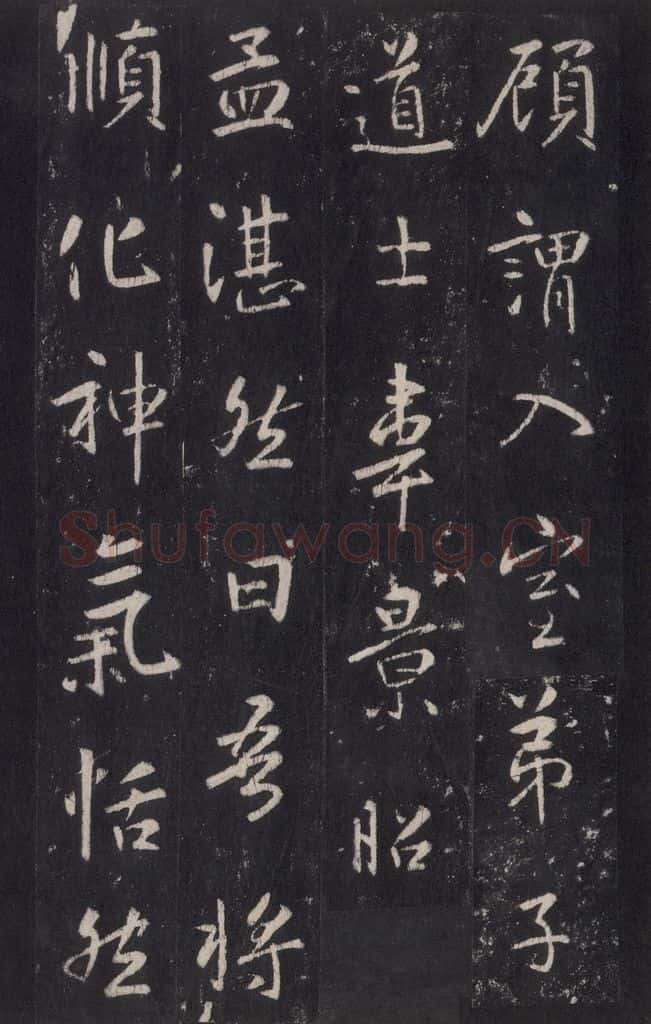 顧謂入室弟子
道士韋景昭
孟湛然曰吾將
順化神氣恬然
Shufawang.CN